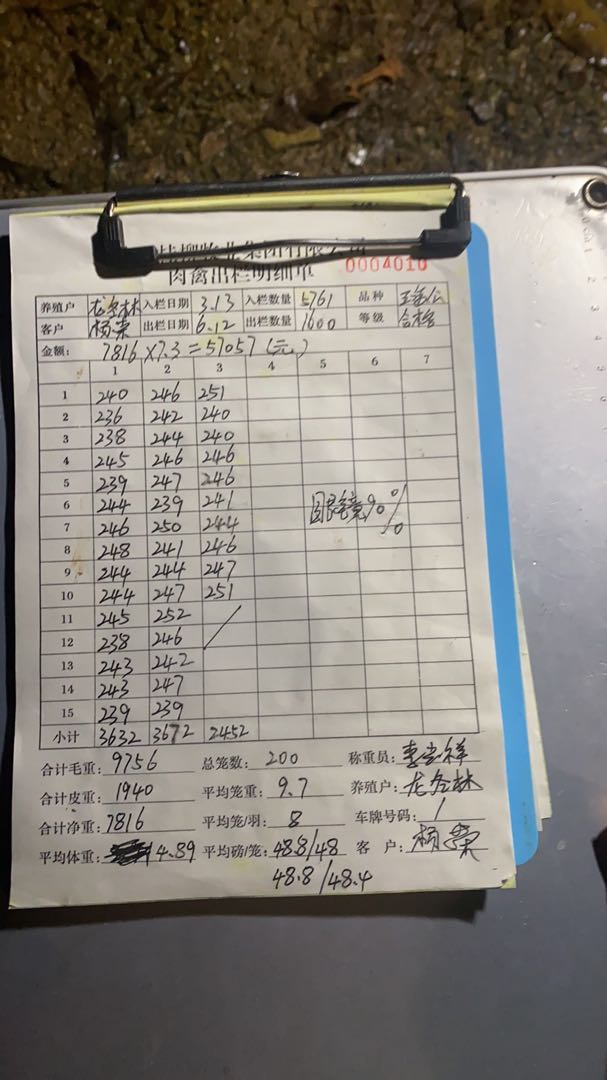 肉禽出栏明细单 0004010
养殖户 入栏日期 3.13 入栏数量 5761 品种
客户 杨荣 出栏日期 6.12 出栏数量 1600 等级 合格
金额: 7816×7.3=57057(元)
1 2 3 4 5 6 7
1 240 246 251
2 236 242 240
3 238 244 240
4 245 246 246
5 239 247 246
6 244 239 241
7 246 250 244
90%
8 248 241 246
9 244 244 247
10 244 247 251
11 245 252
12 238 246
13 243 242
14 243 247
15 239 239
小计 3632 3672 2452
合计毛重: 9756 总笼数: 200 称重员:
合计皮重: 1940 平均笼重: 9.7 养殖户:
合计净重: 7816 平均笼/羽: 8 车牌号码: /
平均体重: 4.89 平均磅/笼: 48.8/48 客 户: 杨荣
48.8/48.4